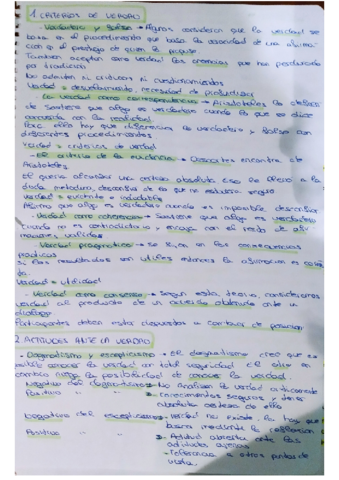 1 CRITERIOS DE VERDAD
- Verdadero y falso → Algunos consideran que la verdad se
basa en el procedimiento que basa la autoridad de una afirma-
ción o el prestigio de quien la propuso
También aceptan como verdad las creencias que han perdurado
por tradición
No admiten ni críticas ni cuestionamientos
Verdad =
- La verdad como correspondencia → Aristóteles la define
de sostiene que algo es verdadero cuando lo que se dice
concuerda con la realidad
Para ello hay que diferenciar lo verdadero y falso con
diferentes procedimientos
Verdad = criterios de verdad
- El criterio de la evidencia → Descartes encontra de
Aristóteles
Él quería alcanzar una certeza absoluta eso le llevó a la
duda metódica, desconfía de lo que no estuviera seguro
Verdad = evidente e indudable
Afirma que algo es verdadero cuando es imposible desconfiar
- Verdad como coherencia → Sostiene que algo es verdadero
cuando no es contradictorio y encaja con el resto de afir-
maciones validas
- Verdad pragmática → se fijan en las consecuencias
prácticas
Si los resultados son utiles entonces la afirmacion es cier-
ta
Verdad = utilidad
- Verdad como consenso → Según esta teoría, consideramos
verdad al producto de un acuerdo obtenido ante un
dialogo
Participantes deben estar dispuestos a cambiar de posición
2. ACTITUDES ANTE LA VERDAD
- Dogmatismo y escepticismo → El dogmatismo cree que es
posible conocer la verdad con total seguridad. El otro en
cambio niega la posibilidad de conocer la verdad.
Negativo del dogmatismo → No analizan la verdad criticamente
Positivo " " → conocimientos seguros y tener
absoluta certeza de ello
Negativo del escepticismo → verdad no existe, la hay que
buscar mediante la reflexión
Positivo " " → Actitud abierta ante las
actitudes ajenas
- Tolerancia a otros puntos de
vista.